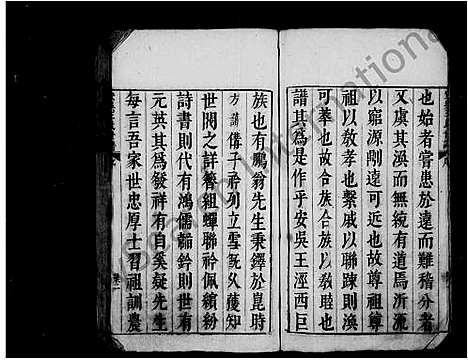 也始者嘗患於遠而難稽分者
又虞其渙而無統有道焉沂流
以窮源則遠可近也故尊祖尊
祖以敎孝也繫戚以聯踈則渙
可萃也故合族合族以敦睦也
譜其爲是作乎安吳王涇西巨
族也有鵬翁先生秉鐸於崑時
方講備子衿列立雪
世閥之詳簪組蟬聯衿佩繽紛
詩書則代有鴻儒韜鈐則世有
元英其爲發祥有自奚疑先生
每言吾家世忠厚士習祖訓農